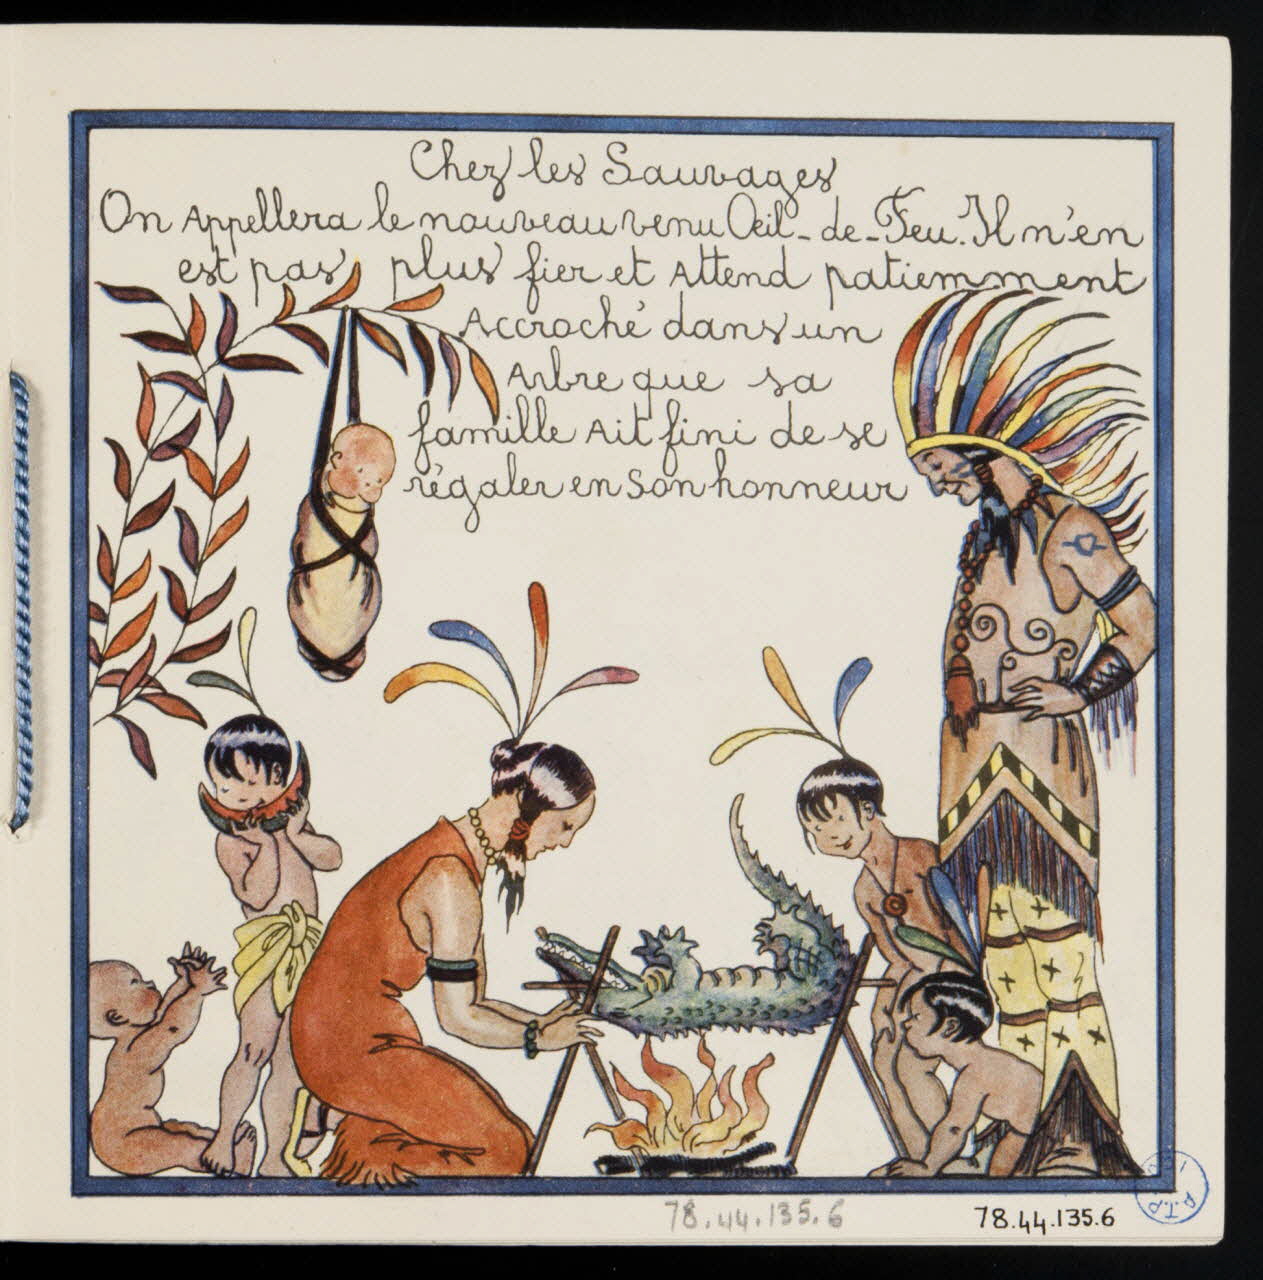 Chez les Sauvages
On Appellera le nouveau venu Œil-de-Feu. Il n'en
est pas plus fier et Attend patiemment
Accroché dans un
Arbre que sa
famille Ait fini de se
régaler en son honneur
78.44.135.6
78.44.135.6
A.T.P